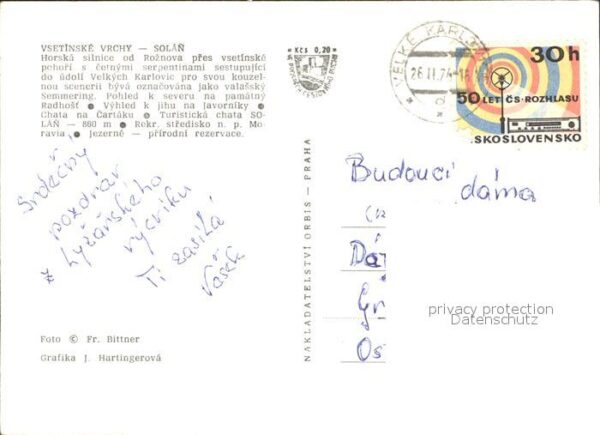 VSETÍNSKÉ VRCHY — SOLÁŇ
Horská silnice od Rožnova přes vsetínské
pohoří s četnými serpentinami sestupující
do údolí Velkých Karlovic pro svou kouzel-
nou scenerii bývá označována jako valašský
Semmering. Pohled k severu na památný
Radhošť ● Výhled k jihu na Javorníky ●
Chata na Čartáku ● Turistická chata SO-
LÁŇ — 860 m ● Rekr. středisko n. p. Mo-
ravia ● Jezerné — přírodní rezervace.
Kčs 0,20
VELKÉ KARLOVICE
26.II.74
30h
50 LET ČS. ROZHLASU
ČESKOSLOVENSKO
Srdečný
pozdrav
z Lyžařského
výcviku
Ti zasílá
Vašek
NAKLADATELSTVÍ ORBIS — PRAHA
Budoucí
dáma
Os
privacy protection
Datenschutz
Foto © Fr. Bittner
Grafika J. Hartingerová